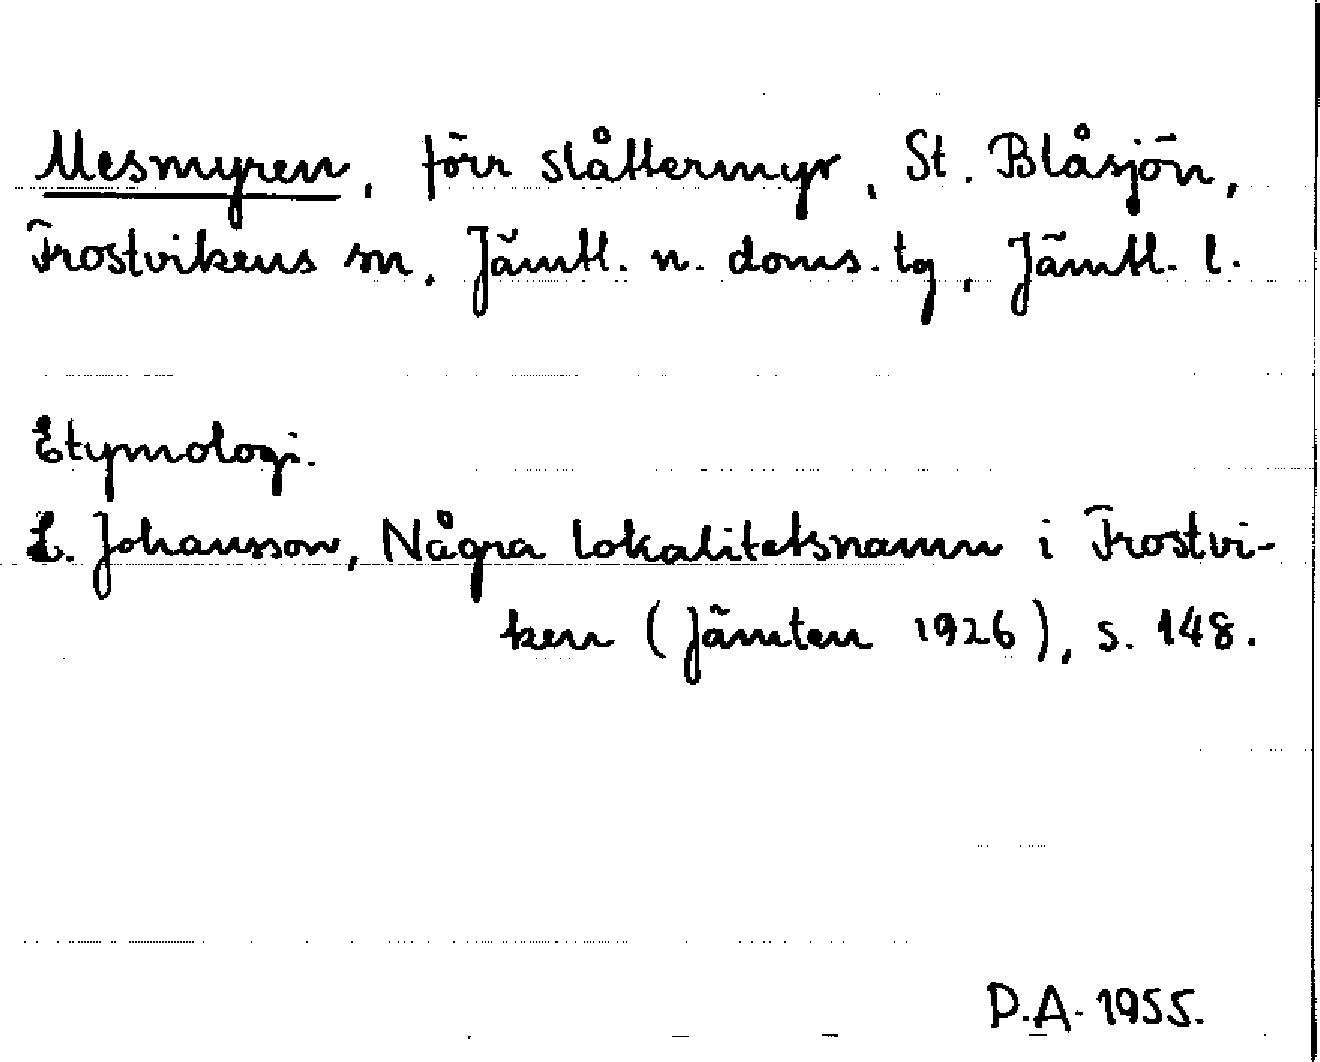 Mesmyren, förr slåttermyr, St. Blåsjön,
Frostvikens sn, Jämtl. n. doms. tg, Jämtl. l.
Etymologi.
L. Johansson, Några lokalitetsnamn i Frostvi-
ken (Jämten 1926), s. 148.
P.A. 1955.